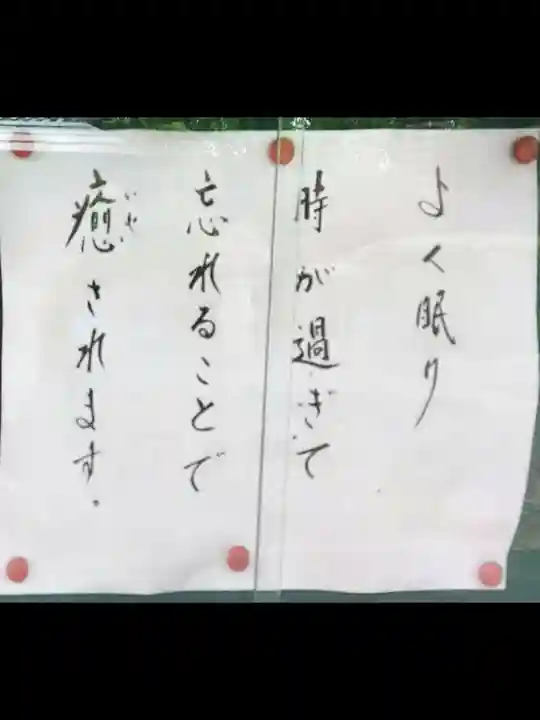 よく眠り
時が過ぎて
忘れることで
癒されます.